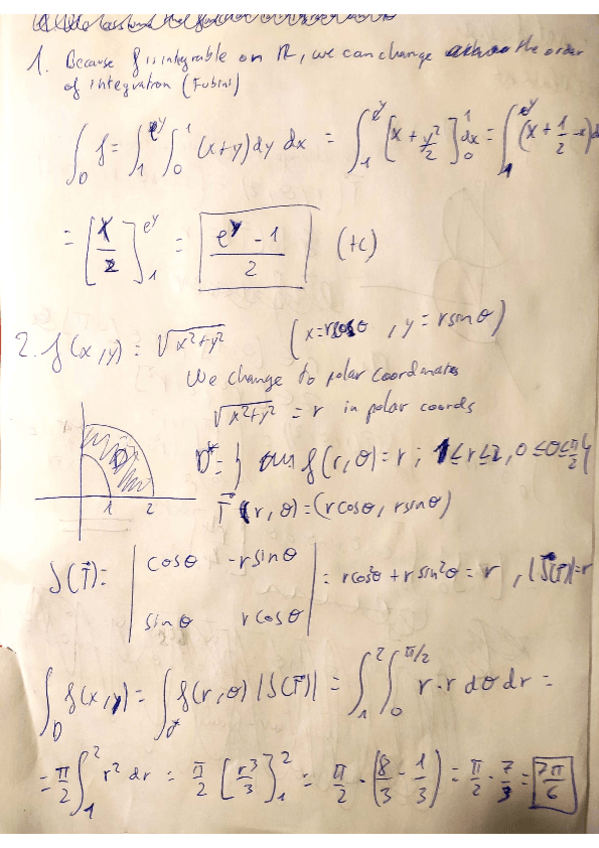 1. Because f is integrable on ℝ, we can change the order
of integration (Fubini)
∫_D f = ∫_1^{e^y} ∫_0^1 (x+y) dy dx = ∫_1^{e^y} [x + y²/2]_0^1 dx = ∫_1^{e^y} (x + 1/2 - x) d
= [x/2]_1^{e^y} = (e^y - 1)/2 (+c)
2. f(x,y) = √(x²+y²) (x=rcosθ, y=rsinθ)
We change to polar coordinates
√(x²+y²) = r in polar coords
D* = { f(r,θ)=r ; 1≤r≤2, 0≤θ≤π/2 }
D
1 2
T⃗(r,θ)=(rcosθ, rsinθ)
J(T⃗)= | cosθ -rsinθ |
| sinθ rcosθ | = rcos²θ + rsin²θ = r , |J(T⃗)|=r
∫_D f(x,y) = ∫_{D*} f(r,θ) |J(T⃗)| = ∫_1^2 ∫_0^{π/2} r·r dθ dr =
= π/2 ∫_1^2 r² dr = π/2 [r³/3]_1^2 = π/2 · (8/3 - 1/3) = π/2 · 7/3 = 7π/6